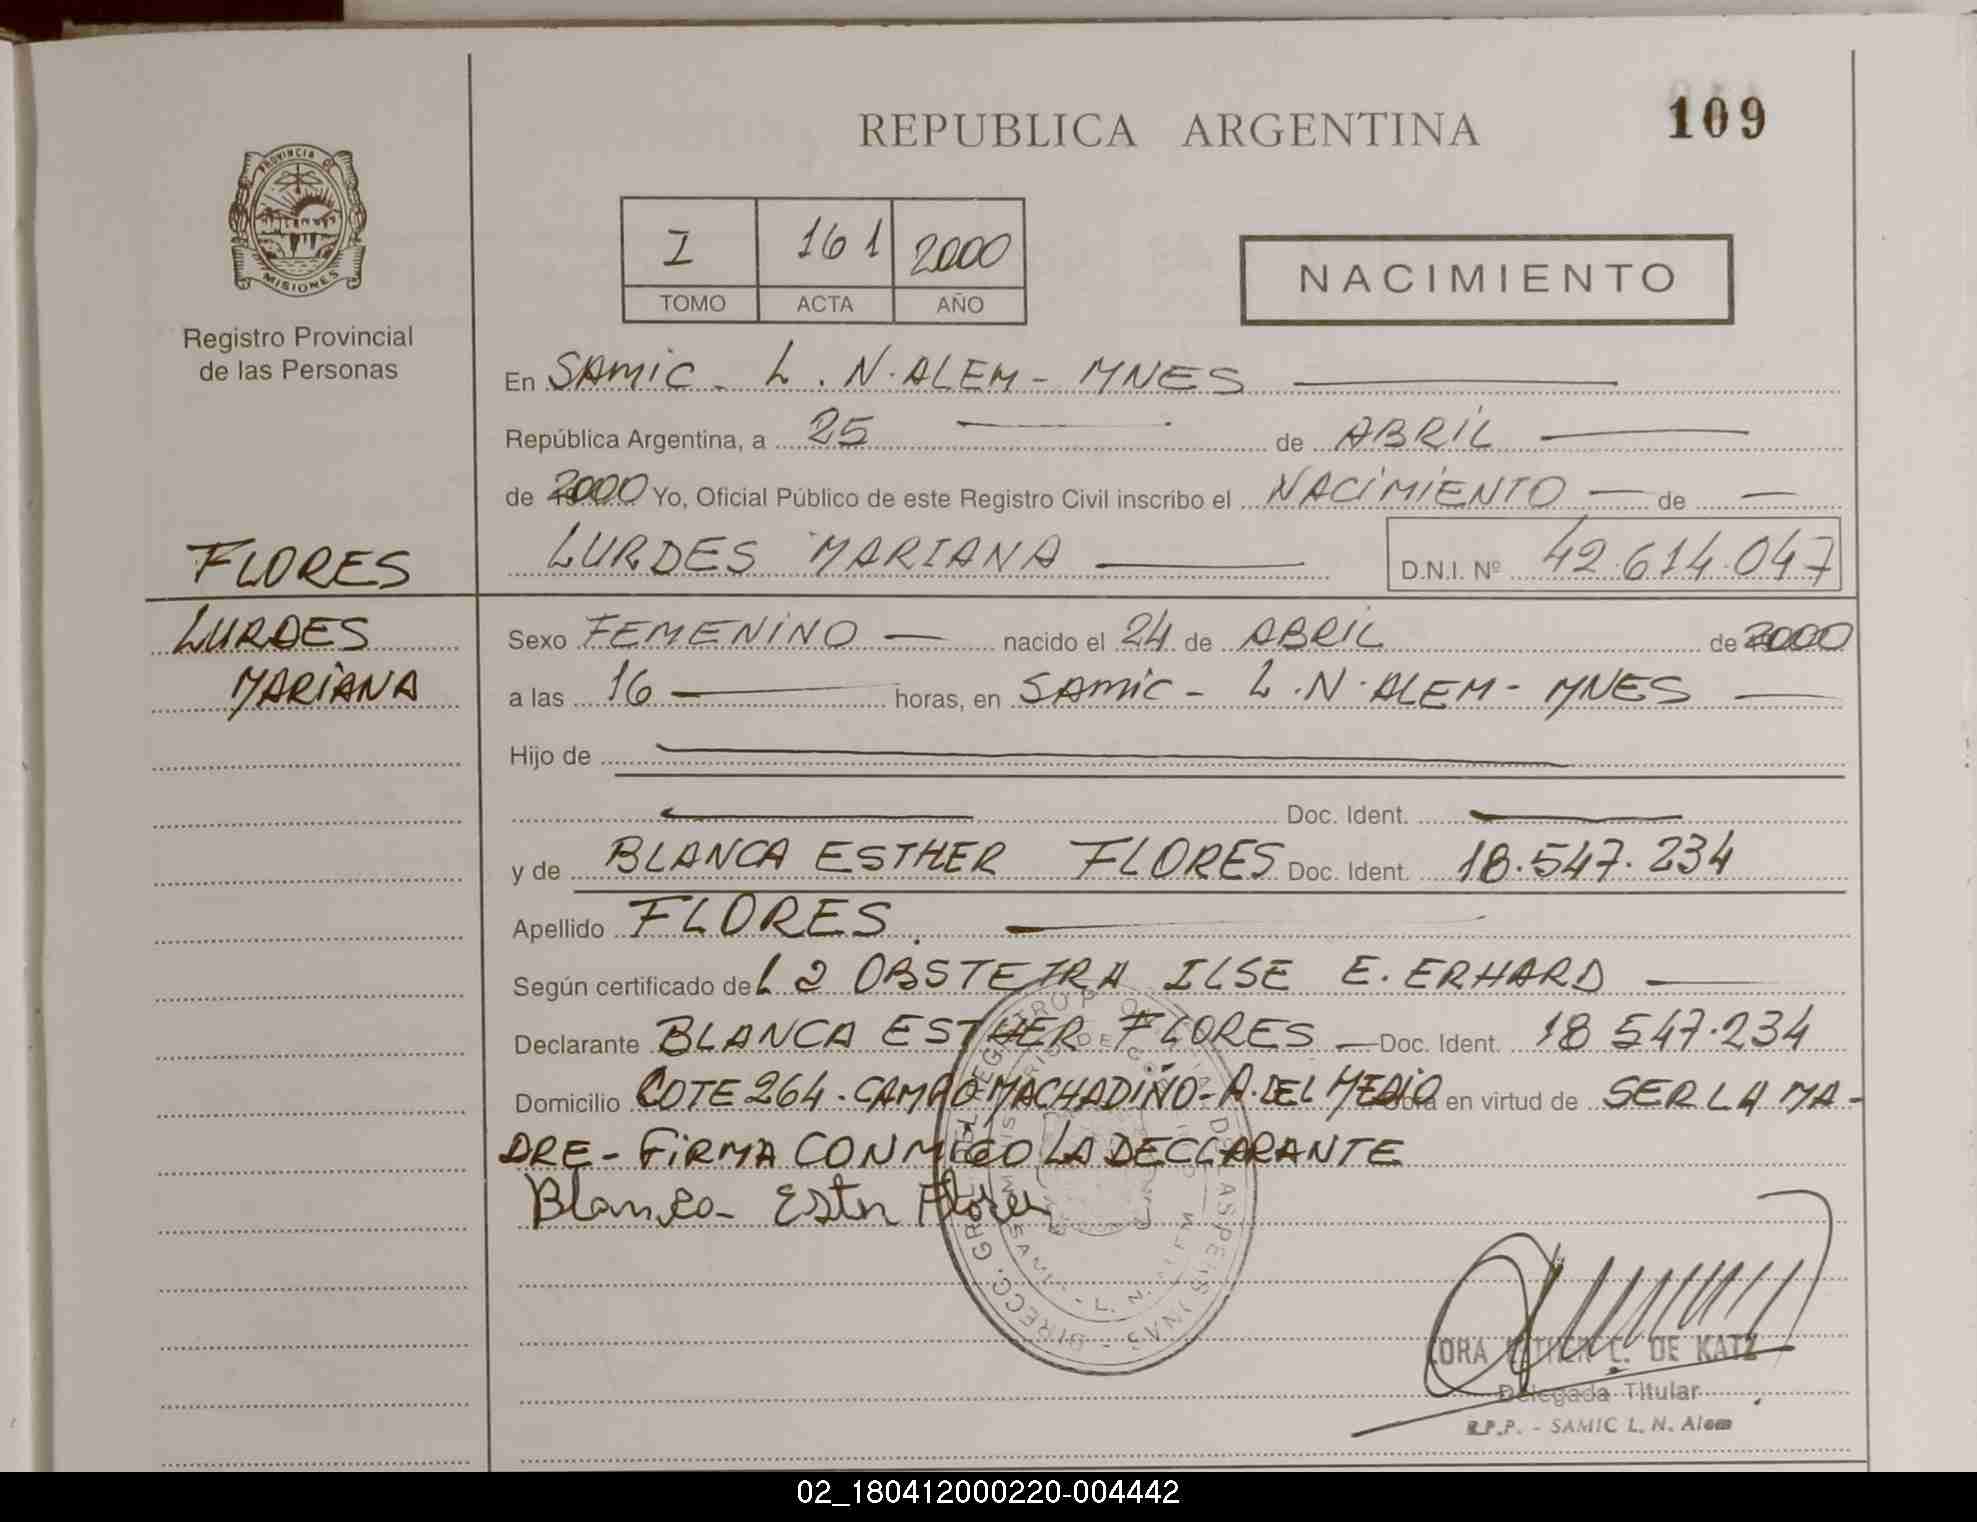 REPUBLICA ARGENTINA
109
PROVINCIA DE
MISIONES
Registro Provincial
de las Personas
I 161 2000
TOMO ACTA AÑO
NACIMIENTO
En SAMIC - L. N. ALEM - MNES
República Argentina, a 25 de ABRIL
de 2000 Yo, Oficial Público de este Registro Civil inscribo el NACIMIENTO de
LURDES MARIANA D.N.I. Nº 42.614.047
FLORES
LURDES
MARIANA
Sexo FEMENINO nacido el 24 de ABRIL de 2000
a las 16 horas, en SAMIC - L. N. ALEM - MNES
Hijo de
Doc. Ident.
y de BLANCA ESTHER FLORES Doc. Ident. 18.547.234
Apellido FLORES
Según certificado de L a OBSTETRA ILSE E. ERHARD
Declarante BLANCA ESTHER FLORES Doc. Ident. 18 547.234
Domicilio LOTE 264 - CAMPO MACHADIÑO - A. DEL MEDIO Obra en virtud de SER LA MA-
DRE - FIRMA CONMIGO LA DECLARANTE
Blanca Ester Flores
DE KATZ
Delegada Titular
R.P.P. - SAMIC L. N. Alem
02_180412000220-004442